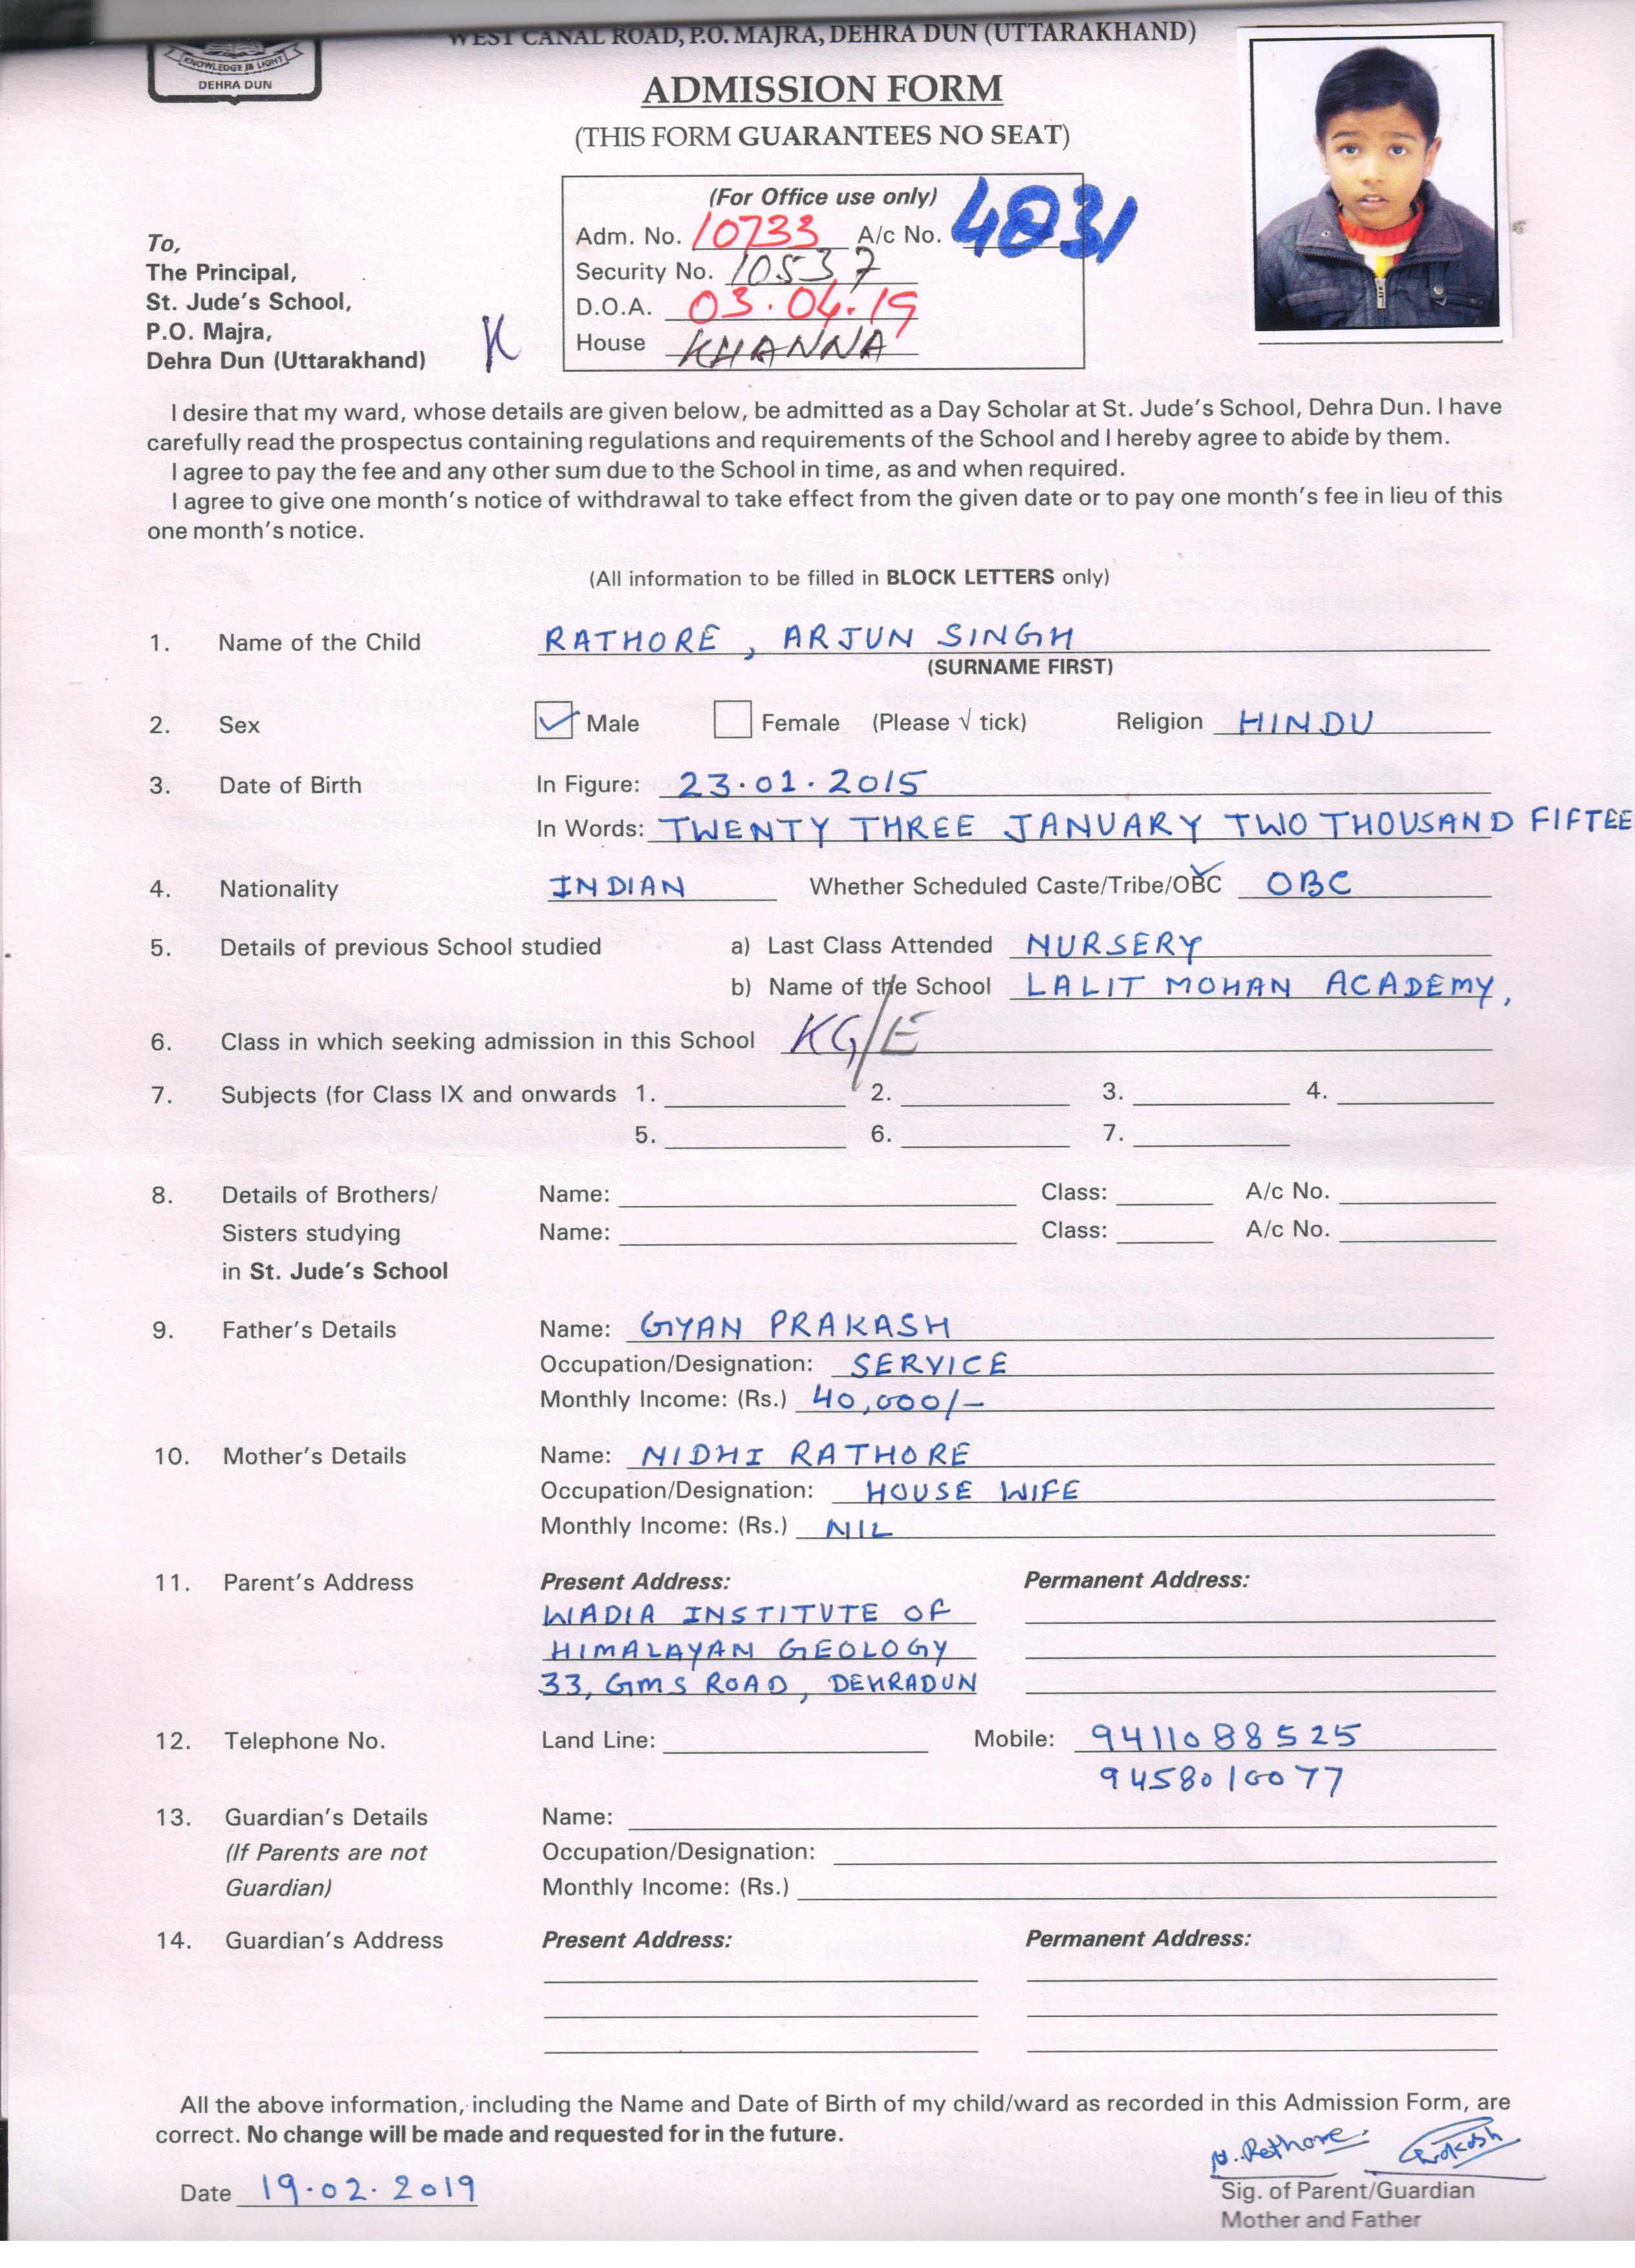 WEST CANAL ROAD, P.O. MAJRA, DEHRA DUN (UTTARAKHAND)
KNOWLEDGE IS LIGHT
DEHRA DUN
ADMISSION FORM
(THIS FORM GUARANTEES NO SEAT)
(For Office use only)
Adm. No. 10733 A/c No. 4831
Security No. 10537
D.O.A. 03.04.19
House KHANNA
To,
The Principal,
St. Jude's School,
P.O. Majra,
Dehra Dun (Uttarakhand)
K
I desire that my ward, whose details are given below, be admitted as a Day Scholar at St. Jude's School, Dehra Dun. I have
carefully read the prospectus containing regulations and requirements of the School and I hereby agree to abide by them.
I agree to pay the fee and any other sum due to the School in time, as and when required.
I agree to give one month's notice of withdrawal to take effect from the given date or to pay one month's fee in lieu of this
one month's notice.
(All information to be filled in BLOCK LETTERS only)
1. Name of the Child RATHORE, ARJUN SINGH
(SURNAME FIRST)
2. Sex Male Female (Please √ tick) Religion HINDU
3. Date of Birth In Figure: 23.01.2015
In Words: TWENTY THREE JANUARY TWO THOUSAND FIFTEE
4. Nationality INDIAN Whether Scheduled Caste/Tribe/OBC OBC
5. Details of previous School studied a) Last Class Attended NURSERY
b) Name of the School LALIT MOHAN ACADEMY,
6. Class in which seeking admission in this School KG/E
7. Subjects (for Class IX and onwards 1. 2. 3. 4.
5. 6. 7.
8. Details of Brothers/ Name: Class: A/c No.
Sisters studying Name: Class: A/c No.
in St. Jude's School
9. Father's Details Name: GYAN PRAKASH
Occupation/Designation: SERVICE
Monthly Income: (Rs.) 40,000/-
10. Mother's Details Name: NIDHI RATHORE
Occupation/Designation: HOUSE WIFE
Monthly Income: (Rs.) NIL
11. Parent's Address Present Address: Permanent Address:
WADIA INSTITUTE OF
HIMALAYAN GEOLOGY
33, GMS ROAD, DEHRADUN
12. Telephone No. Land Line: Mobile: 9411088525
9458010077
13. Guardian's Details Name:
(If Parents are not Occupation/Designation:
Guardian) Monthly Income: (Rs.)
14. Guardian's Address Present Address: Permanent Address:
All the above information, including the Name and Date of Birth of my child/ward as recorded in this Admission Form, are
correct. No change will be made and requested for in the future.
N. Rathore. Prakash
Date 19.02.2019
Sig. of Parent/Guardian
Mother and Father